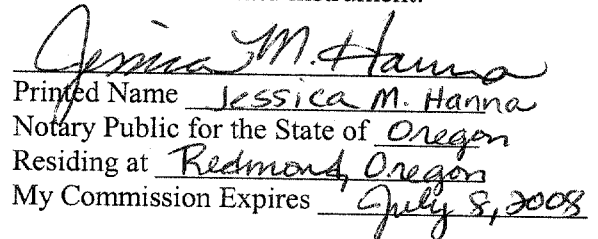 Jessica M. Hanna
Printed Name Jessica M. Hanna
Notary Public for the State of Oregon
Residing at Redmond, Oregon
My Commission Expires July 8, 2008